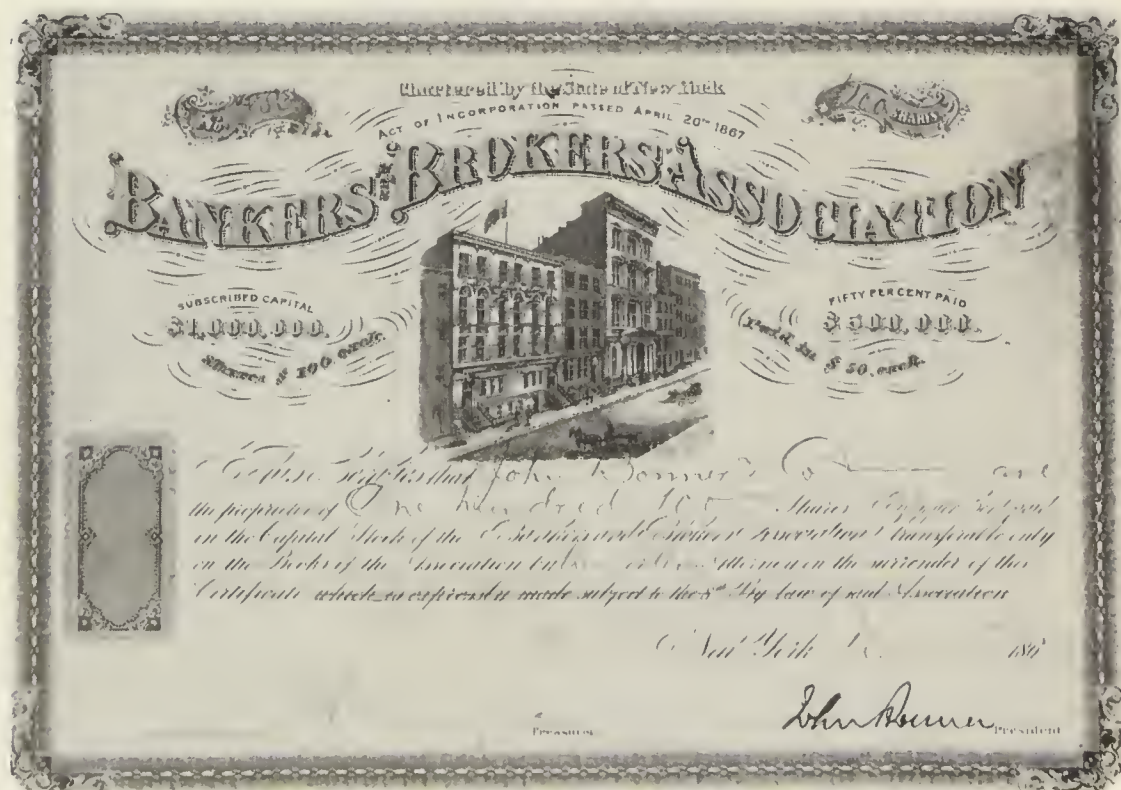 Chartered by the State of New York
No.
100 SHARES
ACT OF INCORPORATION PASSED APRIL 20TH 1867
BANKERS' AND BROKERS' ASSOCIATION
SUBSCRIBED CAPITAL
$1,000,000.
Shares $100 each.
FIFTY PER CENT PAID
$500,000.
Paid in $50 each.
that John Bonner & Co are
the proprietor of One hundred 100 Shares
in the Capital Stock of the Bankers and Brokers Association transferable only
on the Books of the Association Attorney on the surrender of this
Certificate which is expressly made subject to the 8th By-law of said Association
New York 186
Treasurer
John Bonner President